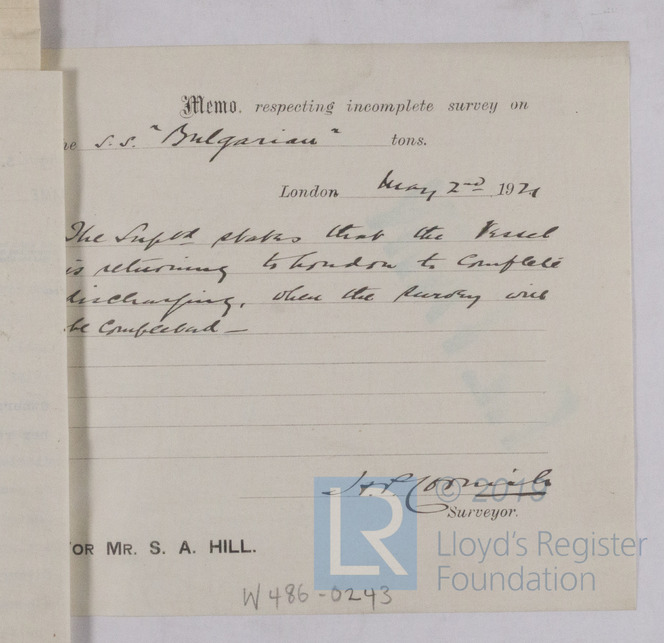 Memo. respecting incomplete survey on
he S.S. "Bulgarian" tons.
London May 2nd 1921
The Suptd states that the Vessel
is returning to London to complete
discharging, when the survey will
be completed —
H P Cornish
© 2019
Surveyor.
OR MR. S. A. HILL.
LR
Lloyd's Register
Foundation
W486-0243